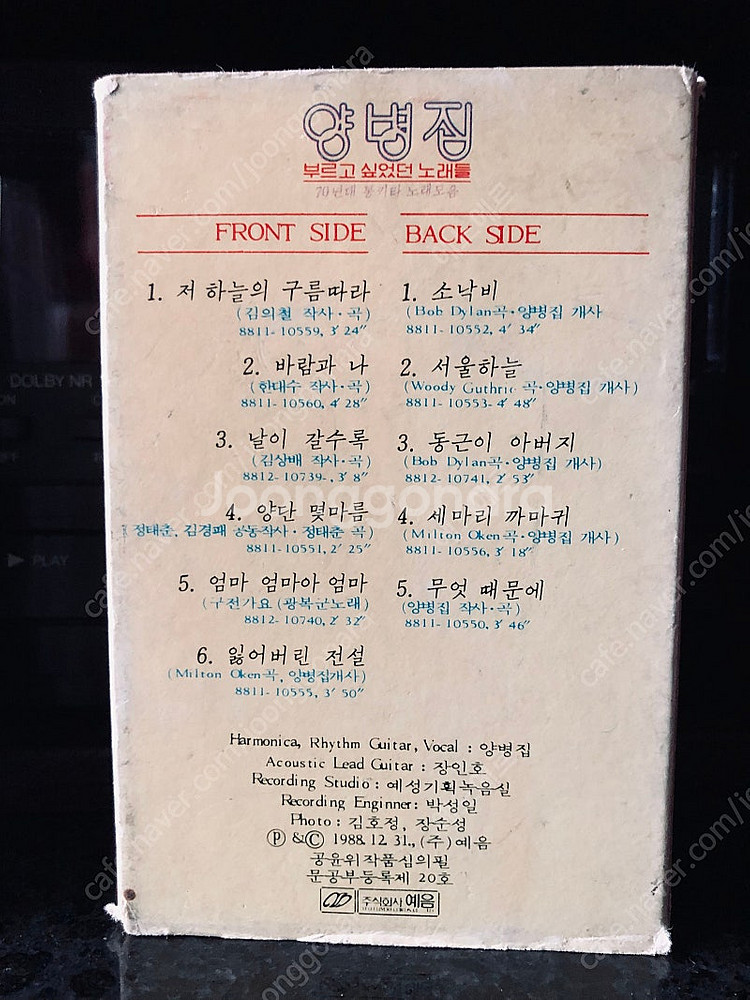 양병집
부르고 싶었던 노래들
70년대 통키타 노래모음
FRONT SIDE
1. 저 하늘의 구름따라
(김의철 작사·곡)
8811-10559, 3′ 24″
2. 바람과 나
(한대수 작사·곡)
8811-10560, 4′ 28″
3. 날이 갈수록
(김상배 작사·곡)
8812-10739-, 3′ 8″
4. 양단 몇마름
정태춘, 김경패 공동작사·정태춘 곡)
8811-10551, 2′ 25″
5. 엄마 엄마아 엄마
(구전가요 (광복군노래)
8812-10740, 2′ 32″
6. 잃어버린 전설
(Milton Oken곡, 양병집개사)
8811-10555, 3′ 50″
BACK SIDE
1. 소낙비
(Bob Dylan곡·양병집 개사
8811-10552, 4′ 34″
2. 서울하늘
(Woody Guthrie 곡·양병집 개사)
8811-10553-4′ 48″
3. 동근이 아버지
(Bob Dylan곡·양병집 개사)
8812-10741, 2′ 53″
4. 세마리 까마귀
(Milton Oken곡·양병집 개사)
8811-10556, 3′ 18″
5. 무엇 때문에
(양병집 작사·곡)
8811-10550, 3′ 46″
Harmonica, Rhythm Guitar, Vocal : 양병집
Acoustic Lead Guitar : 장인호
Recording Studio : 예성기획녹음실
Recording Enginner: 박성일
Photo : 김호정, 장순성
Ⓟ & Ⓒ 1988. 12. 31., (주) 예음
공윤위작품심의필
문공부등록제 20호
주식회사 예음
DOLBY NR
PLAY
Joonggonara
cafe.naver.com/joonggonara